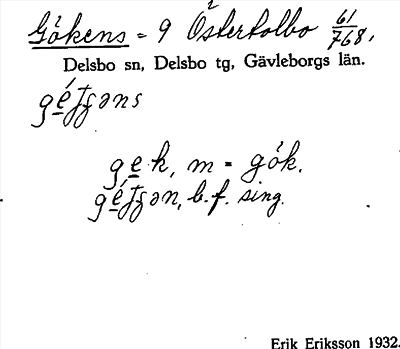 Gökens = 9 Österholbo 61/768,
Delsbo sn, Delsbo tg, Gävleborgs län.
gek, m = gök.
b. f. sing.
Erik Eriksson 1932.